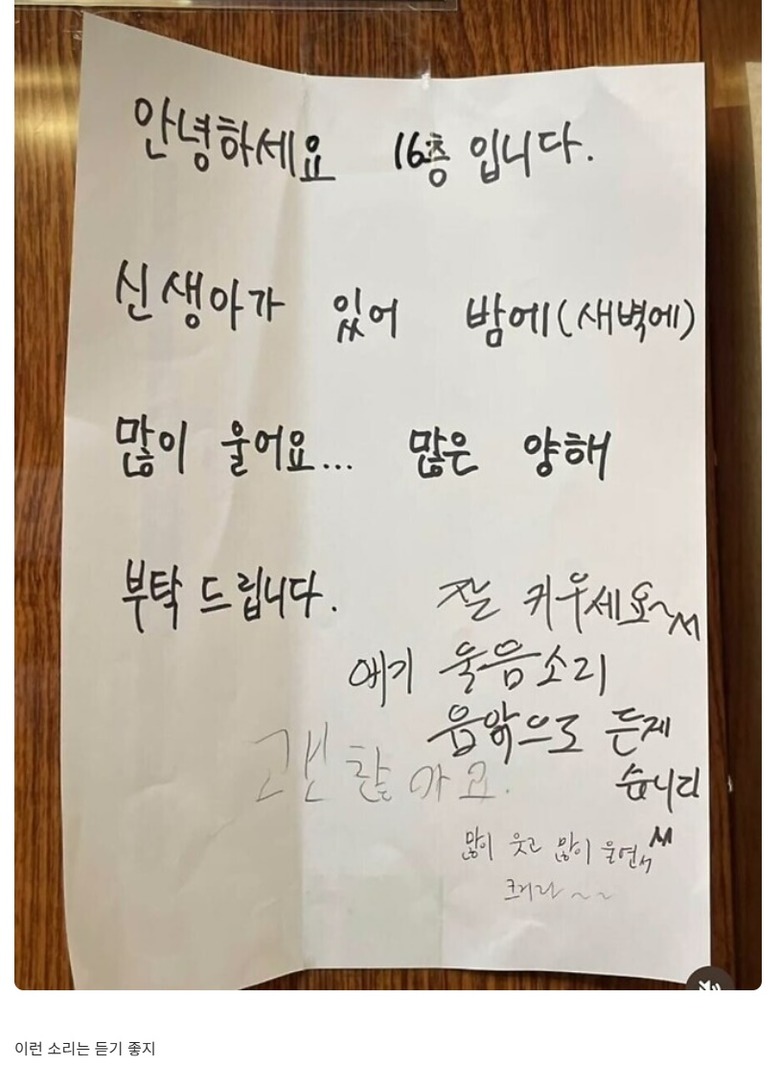 안녕하세요 16층 입니다.
신생아가 있어 밤에(새벽에)
많이 울어요... 많은 양해
부탁 드립니다.
잘 키우세요~
애기 울음소리
음악으로 듣게
습니다
괜찮아요.
많이 웃고 많이 울면서
크거라~~
이런 소리는 듣기 좋지